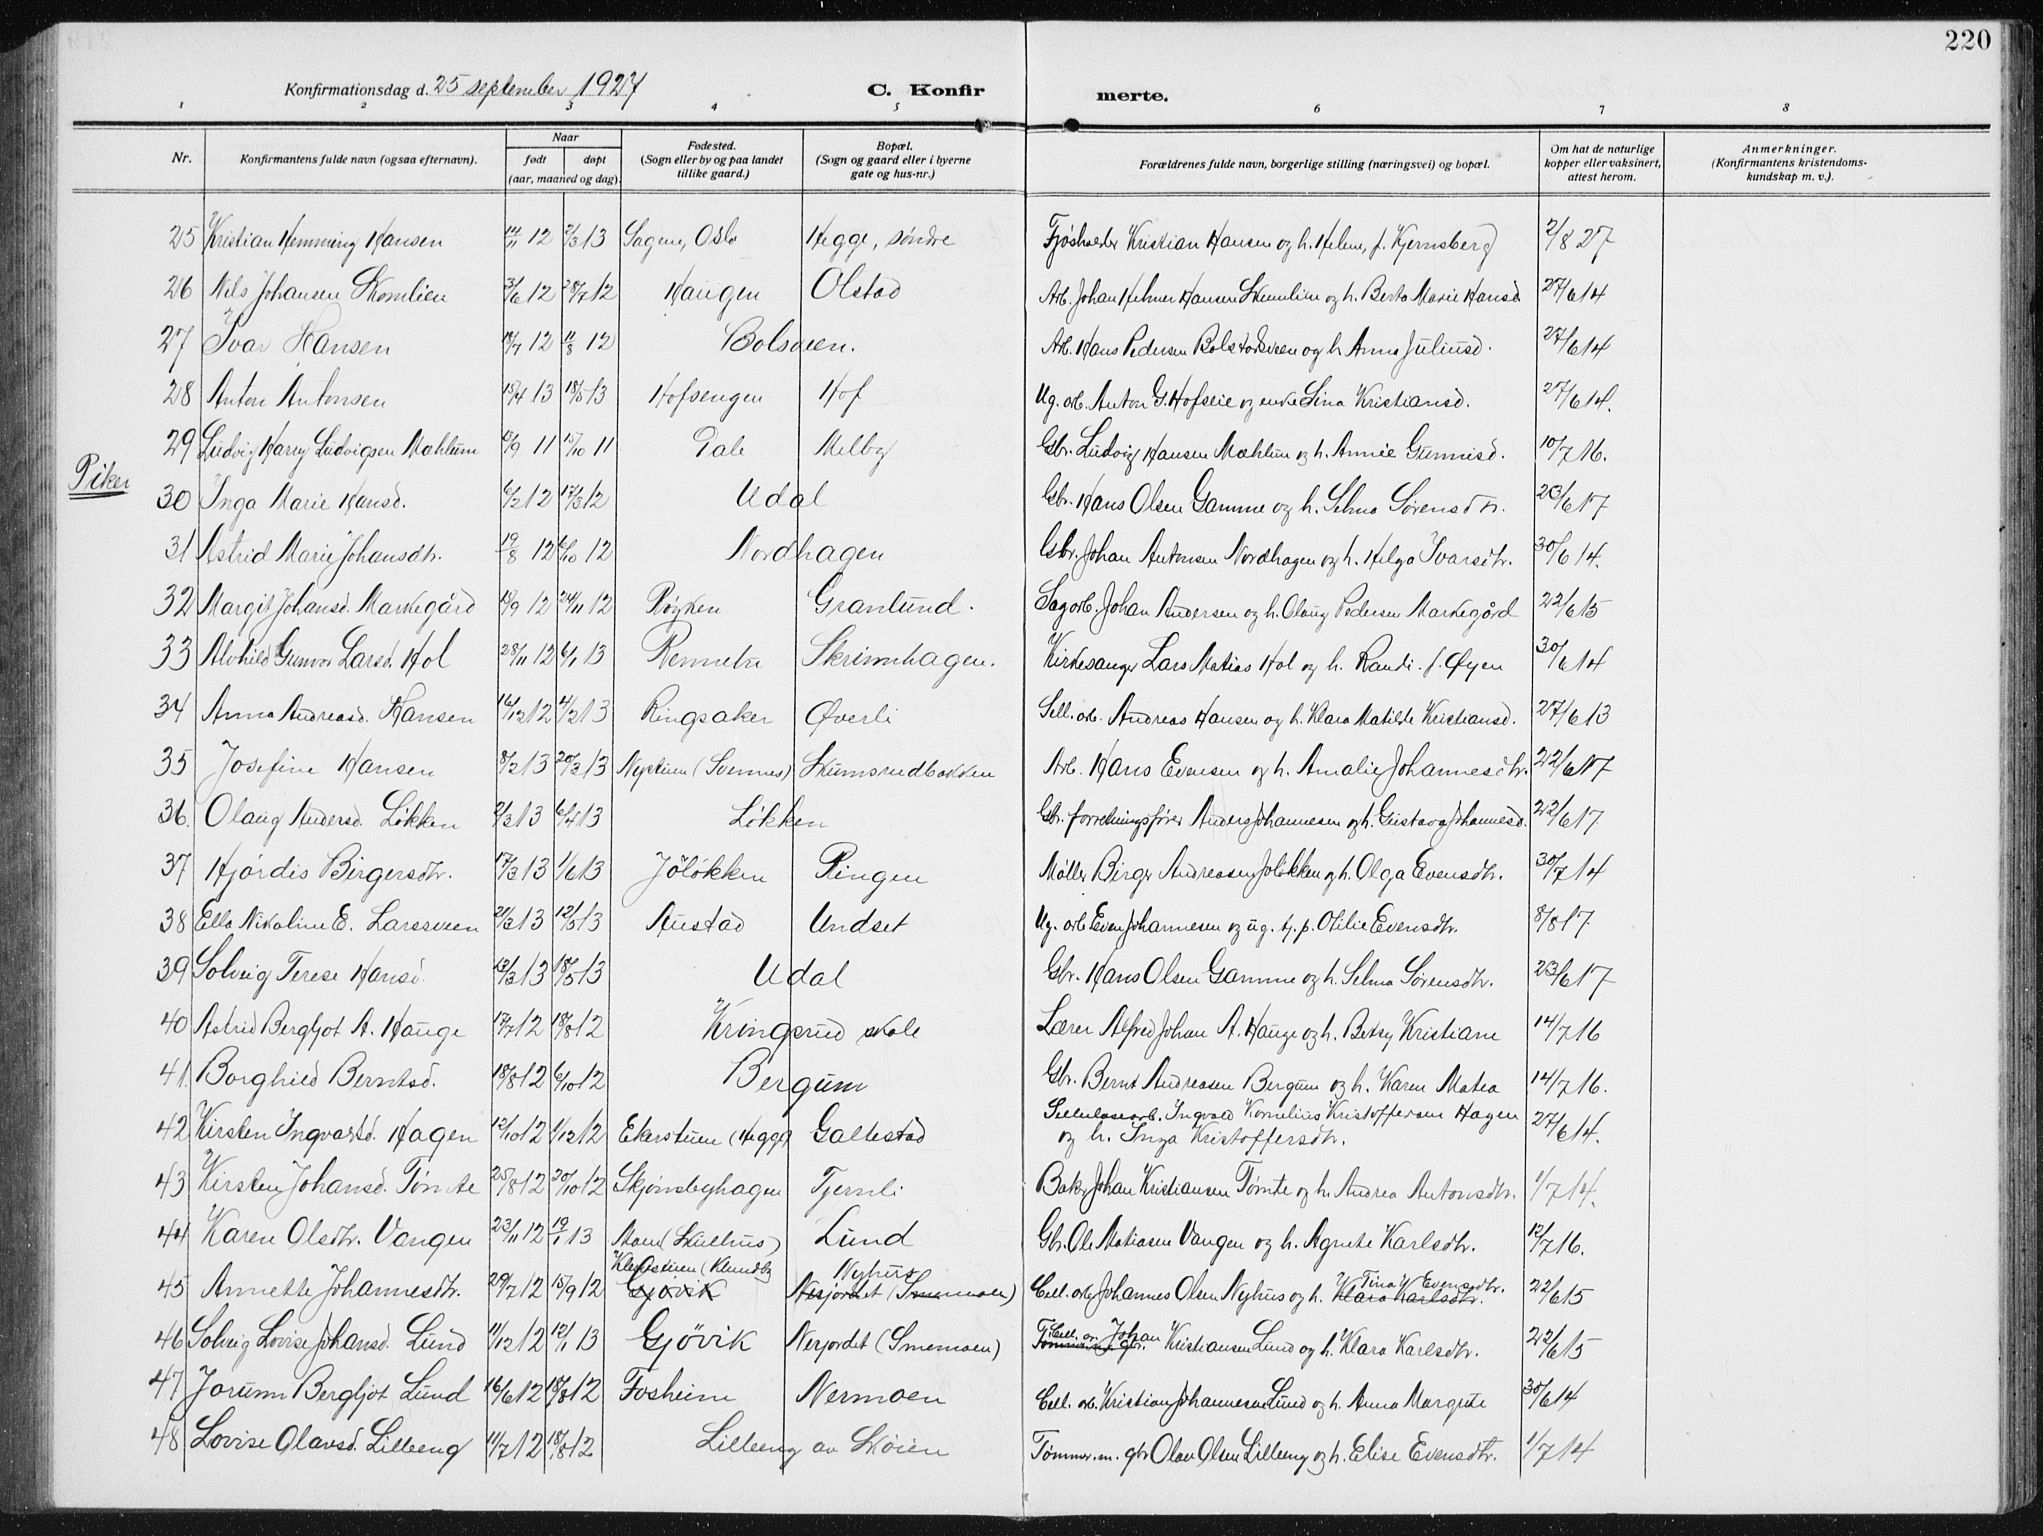 220
Konfirmationsdag d. 25 september 1927
C. Konfirmerte.
1 2 3 4 5 6 7 8
Nr. Konfirmantens fulde navn (ogsaa efternavn). Naar født døpt (aar, maaned og dag). Fødested. (Sogn eller by og paa landet tillike gaard.) Bopæl. (Sogn og gaard eller i byerne gate og hus-nr.) Forældrenes fulde navn, borgerlige stilling (næringsvei) og bopæl. Om hat de naturlige kopper eller vaksinert, attest herom. Anmerkninger. (Konfirmantens kristendomskundskap m. v.).
25 Kristian Hemming Hansen 14/11 12 2/3 13 Sagene, Oslo Hegge, søndre Kristian Hansen og h. Helene, f. Kjernsberg 2/8 27
26 Nils Johansen Skomlien 3/6 12 28/7 12 Haugen Olstad Arb. Johan Helmer Hansen Skumlien og h. Berta Marie Hansd. 27/6 14
27 Ivar Hansen 11/8 12 Bolsveen. Arb. Hans Pedersen Bolstadsveen og h. Anna Juliusd. 27/6 14
28 Anton Antonsen 15/4 13 18/5 13 Hofsengen Hof Ug. arb. Anton G. Hofseie og enke Lina Kristiansd. 27/6 14.
29 Ludvig Harry Ludvigsen Mæhlum 11 15/10 11 Dale Melby Gbr. Ludvig Hansen Mæhlum og h. Annie Gunnisd. 10/7 16.
Piker
30 Inga Marie Hansd. 6/2 12 17/3 12 Udal Gbr. Hans Olsen Gamme og h. Selma Sørensdtr. 23/6 17
31 Astrid Marie Johansdtr. 19/8 12 6/10 12 Nordhagen Gbr. Johan Antonsen Nordhagen og h. Helga Ivarsdtr. 30/6 14.
32 Margit Johansd. Markegård 15/9 12 24/11 12 Røyken Granlund. Sagarb. Johan Andersen og h. Olaug Pedersen Markegård 22/6 15
33 Alvhild Gunvor Larsd. Hol 28/11 12 6/1 13 Rennebu Skrinnhagen. Kirkesanger Lars Matias Hol og h. Randi f. Øyen 30/6 14
34 Anna Andreasd. Hansen 16/12 12 14/2 13 Ringsaker Øverli Sell. arb. Andreas Hansen og h. Klara Matilde Kristiansd. 27/6 13
35 Josefine Hansen 8/2 13 20/3 13 Nystuen (Svennes) Skumsrudbakken Arb. Hans Evensen og h. Amalie Johannesdtr. 22/6 17
36. Olaug Andersd. Løkken 2/3 13 6/4 13 Løkken Gbr. forretningsfører Anders Johannesen og h. Gustava Johannesd. 22/6 17
37 Hjørdis Birgersdtr. 17/3 13 1/6 13 Jøløkken Ringen Møller Birger Andreasen Jøløkken og h. Olga Evensdtr. 30/7 14
38 Ella Nikoline E. Larssveen 21/3 13 12/5 13 Austad Undset Ug. arb. Even Johannesen og ug. tj. p. Otilie Evensdtr. 8/8 17
39 Solveig Terese Hansd. 13/3 13 18/5 13 Udal Gbr. Hans Olsen Gamme og h. Selma Sørensdtr. 23/6 17
40 Astrid Bergljot A. Hauge 17/7 12 18/8 12 Kringsrud skole Lærer Alfred Johan A. Hauge og h. Betsy Kristiane 14/7 16
41 Borghild Berntsd. 18/8 12 6/10 12 Bergum Gbr. Bernt Andreasen Bergum og h. Karen Matea 14/7 16.
42 Kirsten Ingvartsd. Hagen 12/10 12 1/12 12 Ekerstuen (Hegge) Gallestad Sellulosearb. Ingvald Kornelius Kristoffersen Hagen
og h. Inga Kristoffersdtr. 27/6 14.
43 Kirsten Johansd. Tømte 25/8 12 20/10 12 Skjønsbyhagen Tjernli Baker Johan Kristiansen Tømte og h. Andrea Antonsdtr. 1/7 14.
44 Karen Olsdtr. Vangen 23/11 12 19/1 13 Lund Gbr. Ole Matiasen Vangen og h. Agnete Karlsdtr. 12/7 16.
Nyhus Tina Evensdtr.
45 Annette Johannesdtr. 29/7 12 15/9 12 Gjøvik Nerjordet (Smemoen) Cell. arb. Johannes Olsen Nyhus og h. Klara Karlsdtr. 22/6 15
Cell. arb. Johan
46 Solveig Lovise Johansd. Lund 11/12 12 12/1 13 Gjövik Nerjordet (Smemoen) Kristiansen Lund og h. Klara Karlsdtr. 22/6 15
47 Jorunn Bergljot Lund 16/6 12 18/8 12 Fosheim Nermoen Cell. arb. Kristian Johannesen Lund og h. Anna Margrete 30/6 14
48 Lovise Olavsd. Lilleeng 11/7 12 18/8 12 Lilleeng av Skøien Tømmer.m. gbr. Olav Olsen Lilleeng og h. Elise Evensdtr. 1/7 14